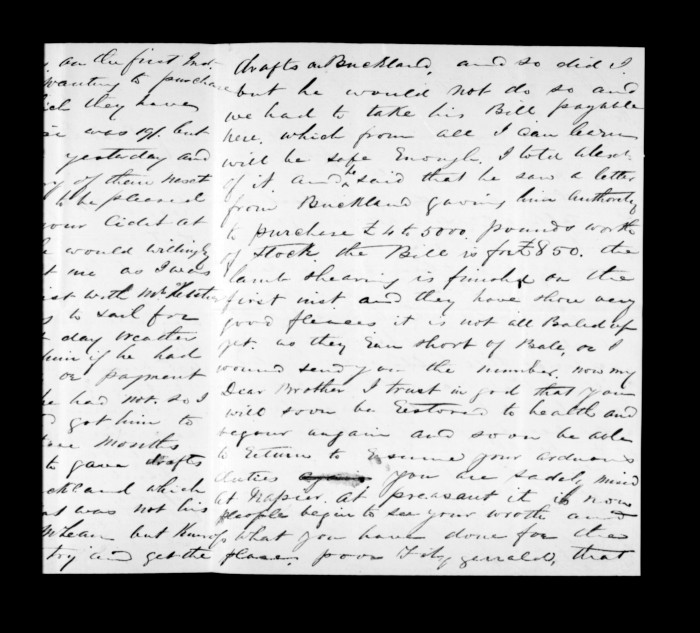 on the first Inst
wanting to purchase
they have
was 19/. but
yestaday and
of them next
be pleased
your Cidet at
would willingly
me as I was
with Mr
to sail for
day weather
him if he had
or payment
he had not. so I
got him to
Months
to gave drafts
which
was not his
McLean but
try and get the
drafts on Buckland, and so did I.
but he would not do so and
we had to take his Bill payable
here. which from all I can learn
will be safe Enough. I told
of it and he said that he saw a letter
from Buckland gaving him Authority
to purchase £4 to 5000 pounds worth
of Stock. the Bill is for £850. the
lamb shearing is finishd on the
first inst and they have shore very
good fleices it is not all Baled up
yet. as they Ran short of Bale, or I
wound send you the number. now my
Dear Brother I trust in god that you
will soon be Restored to health and
vegour angain and soon be able
to Return to Resume your arduous
duties you are sadely mind
at Napier. at preasant it is now
people begin to see your worth and
what you have done for the
place, poor Fitzgerrald, that